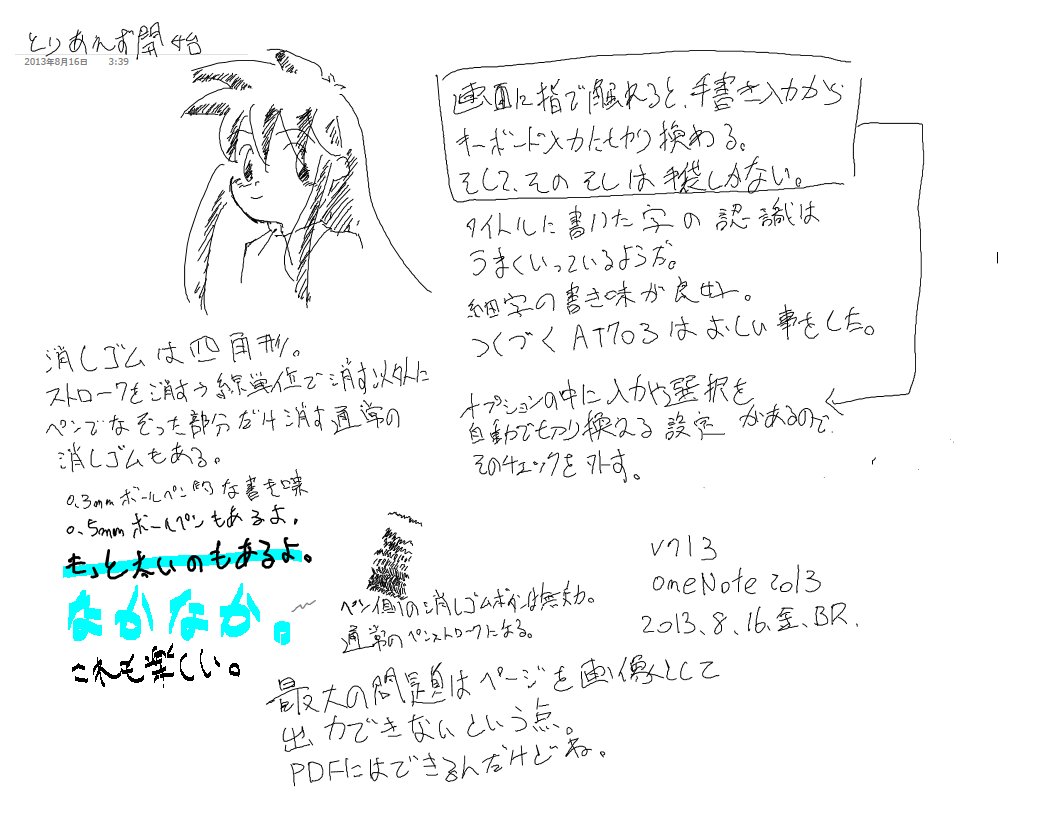 とりあえず開始
2013年8月16日 3:39
画面に指で触れると、手書き入力から
キーボード入力に切り換わる。
そして、その そしは 手袋しかない。
タイトルに書いた字の認識は
うまくいっているようだ。
細字の書き味が良好。
つくづく AT703 はおしい事をした。
オプションの中に入力や選択を
自動で切り換える設定があるので
そのチェックを外す。
消しゴムは四角形。
ストロークを消すう線単位で消す以外に
ペンでなぞった部分だけ消す通常の
消しゴムもある。
0.3mmボールペン的な書き味
0.5mmボールペンもあるよ。
もっと太いのもあるよ。
なかなか。
これも楽しい。
ペン側の消しゴムボタンは無効。
通常のペンストロークになる。
V713
OneNote 2013
2013.8.16.金.BR.
最大の問題はページを画像として
出力できないという点。
PDFにはできるんだけどね。